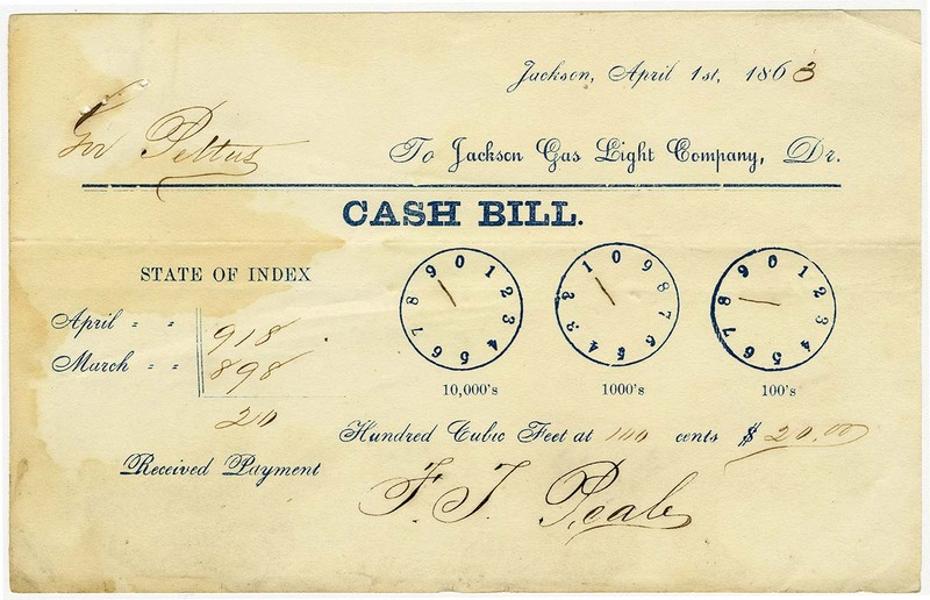 Jackson, April 1st, 1863
Gov Pettus
To Jackson Gas Light Company, Dr.
CASH BILL.
STATE OF INDEX
April " " 918
March " " 898
20
0 1 2 3 4 5 6 7 8 9
10,000's
0 9 8 7 6 5 4 3 2 1
1000's
0 1 2 3 4 5 6 7 8 9
100's
Hundred Cubic Feet at 100 cents $ 20.00
Received Payment
F. J. Peale